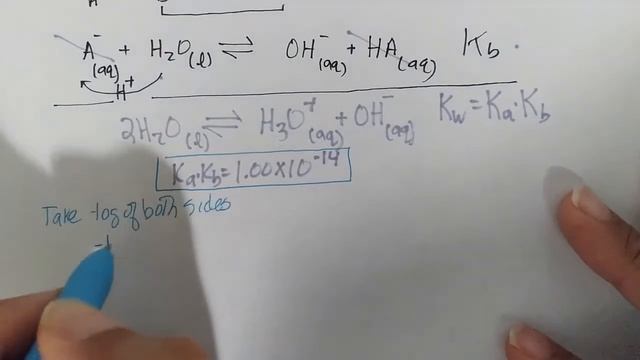 A⁻(aq) + H₂O(l) ⇌ OH⁻(aq) + HA(aq) Kb
H⁺
2H₂O(l) ⇌ H₃O⁺(aq) + OH⁻(aq) Kw = Ka·Kb
Ka·Kb = 1.00×10⁻¹⁴
Take -log of both sides